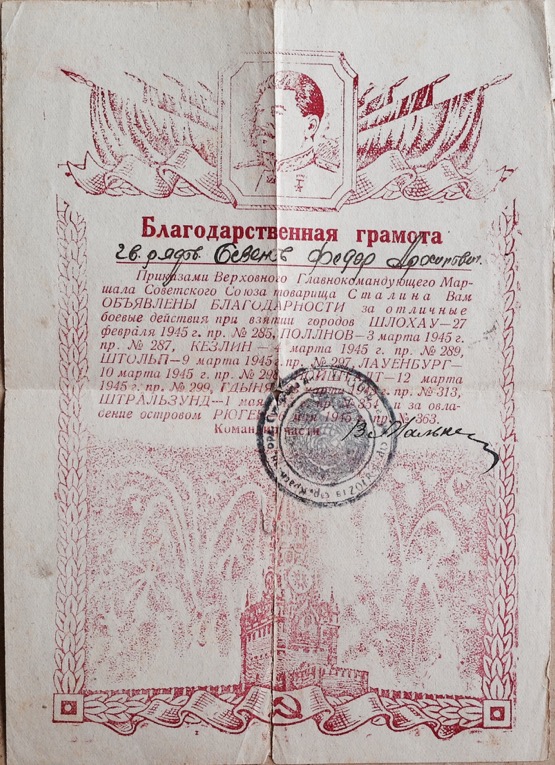 Благодарственная грамота
гв. рядов. Федор
Приказами Верховного Главнокомандующего Мар-
шала Советского Союза товарища Сталина Вам
ОБЪЯВЛЕНЫ БЛАГОДАРНОСТИ за отличные
боевые действия при взятии городов ШЛОХАУ—27
февраля 1945 г. пр. № 285, ПОЛЛНОВ—3 марта 1945 г.
пр. № 287, КЕЗЛИН— марта 1945 г. пр. № 289,
ШТОЛЬП—9 марта 1945 г. пр. № 297, ЛАУЕНБУРГ—
10 марта 1945 г. 12 марта
1945 г. пр. № 299, ГДЫНЯ пр. № 313,
ШТРАЛЬЗУНД—1 мая и за овла-
дение островом РЮГЕН мая 1945 № 363.
Командир части